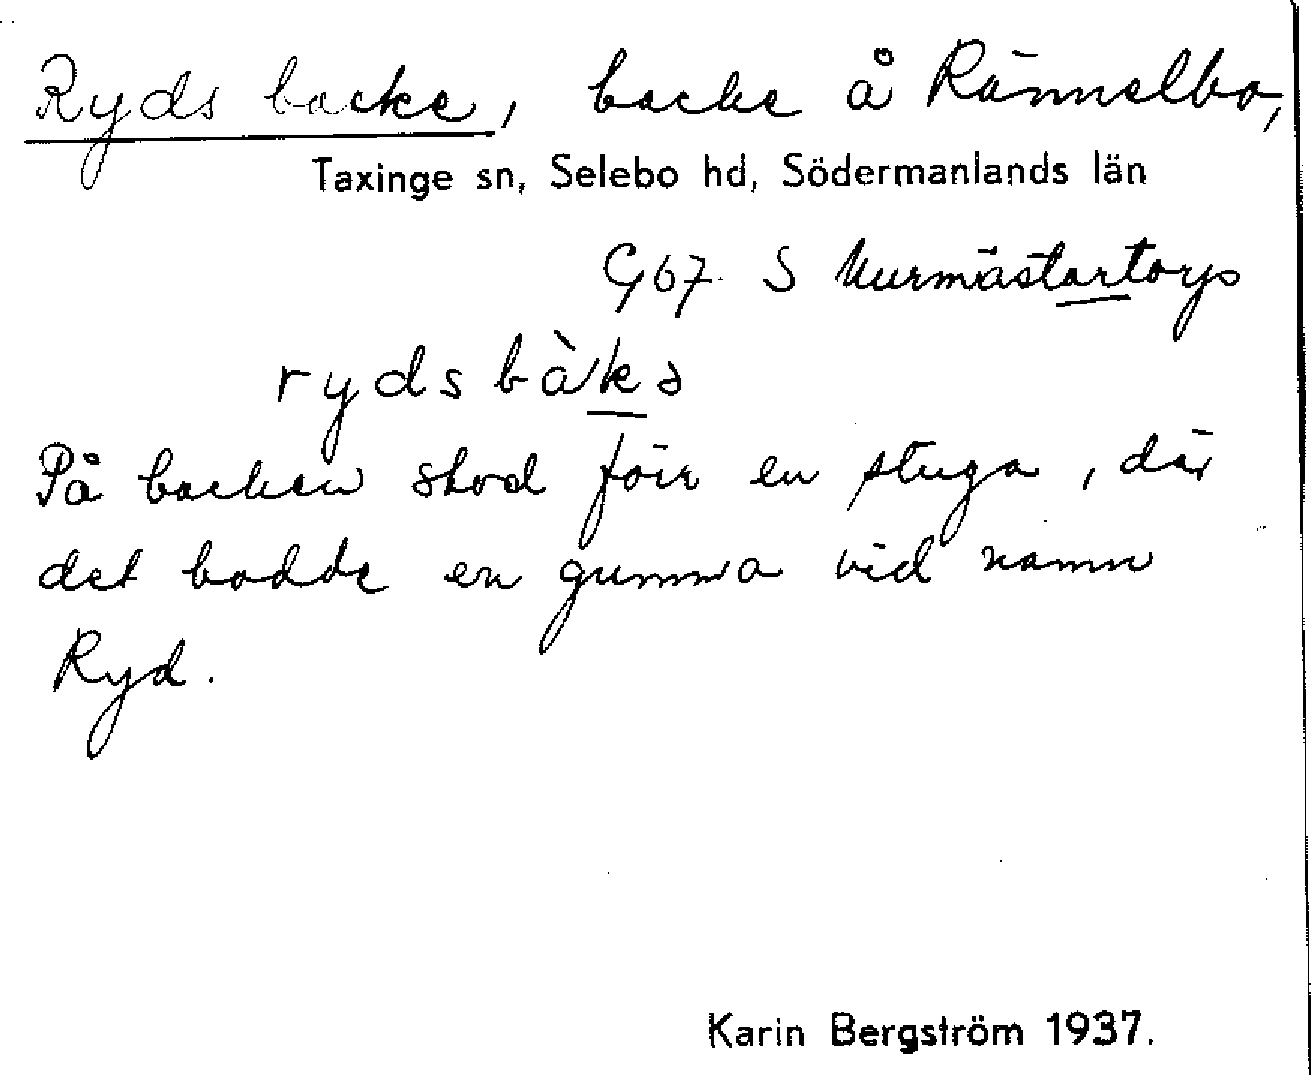 Ryds backe, backe å Rännelbo,
Taxinge sn, Selebo hd, Södermanlands län
G67 S Murmästartorp
rydsbàkə
På backen stod förr en stuga, där
det bodde en gumma vid namn
Ryd.
Karin Bergström 1937.